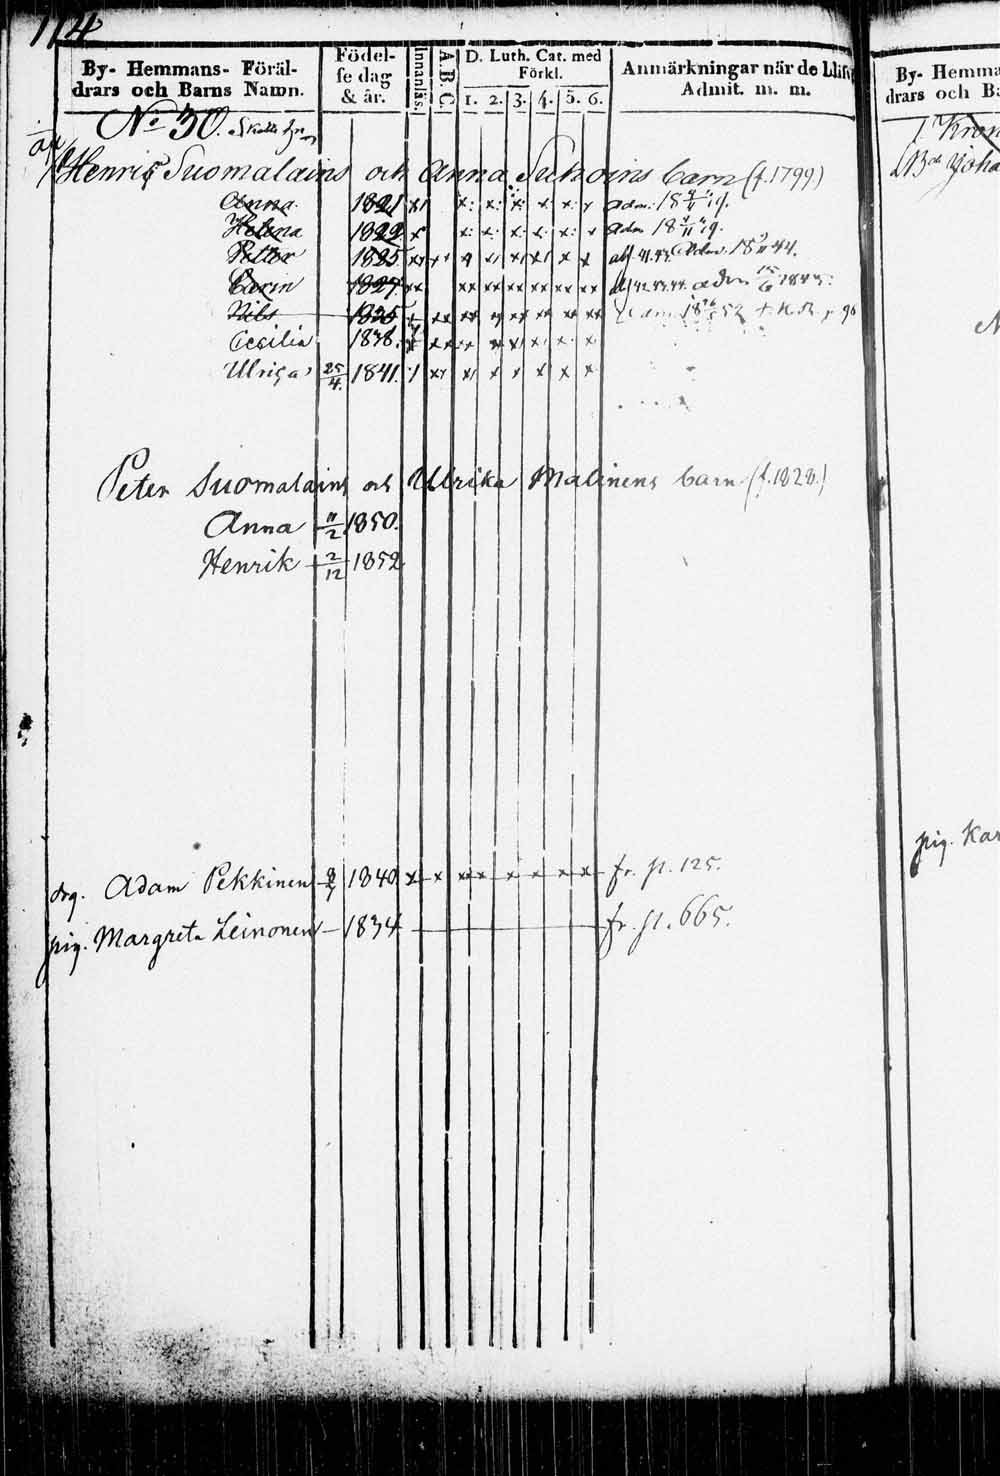 114
By- Hemmans- Föräl-
drars och Barns Namn.
Födel-
se dag
& år.
Innanläs.
A. B. C.
D. Luth. Cat. med
Förkl.
1. 2. 3. 4. 5. 6.
Anmärkningar när de blifv
Admit. m. m.
No 30.
Henric Suomalains och Anna Suhoins barn (f. 1799)
Anna 1821 x x x x x x adm.
Helena 1822 x x x x x x x adm
Petter 1825 x x x x x x x 41.43. Adm. 44.
Carin 1827 xx xx xx xx xx xx xx 42.43.44. adm 15/6 1845.
Nils 1835 x xx xx x xx xx xx xx 52
Cecilia 1838. x x x x x x x
Ulrica 25/4. 1841. x x x x x x
Peter Suomalains och Ulrika Malinens barn (f. 1828.)
Anna 11/2 1850.
Henrik 2/12 1852
drg. Adam Pekkinen 1840 x x xx x x x x fr. p. 125.
pig. Margreta Leinonen 1834 fr. p. 665.
By- Hemma
drars och Ba
Kron
Joha
pig. Kar